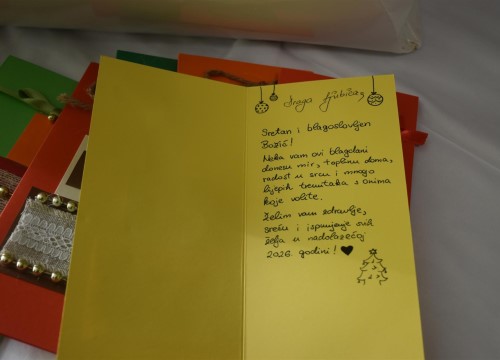 Draga Ljubice,
Sretan i blagoslovljen
Božić!
Neka vam ovi blagdani
donesu mir, toplinu doma,
radost u srcu i mnogo
lijepih trenutaka s onima
koje volite.
Želim vam zdravlje,
sreću i ispunjenje svih
želja u nadolazećoj
2026. godini!